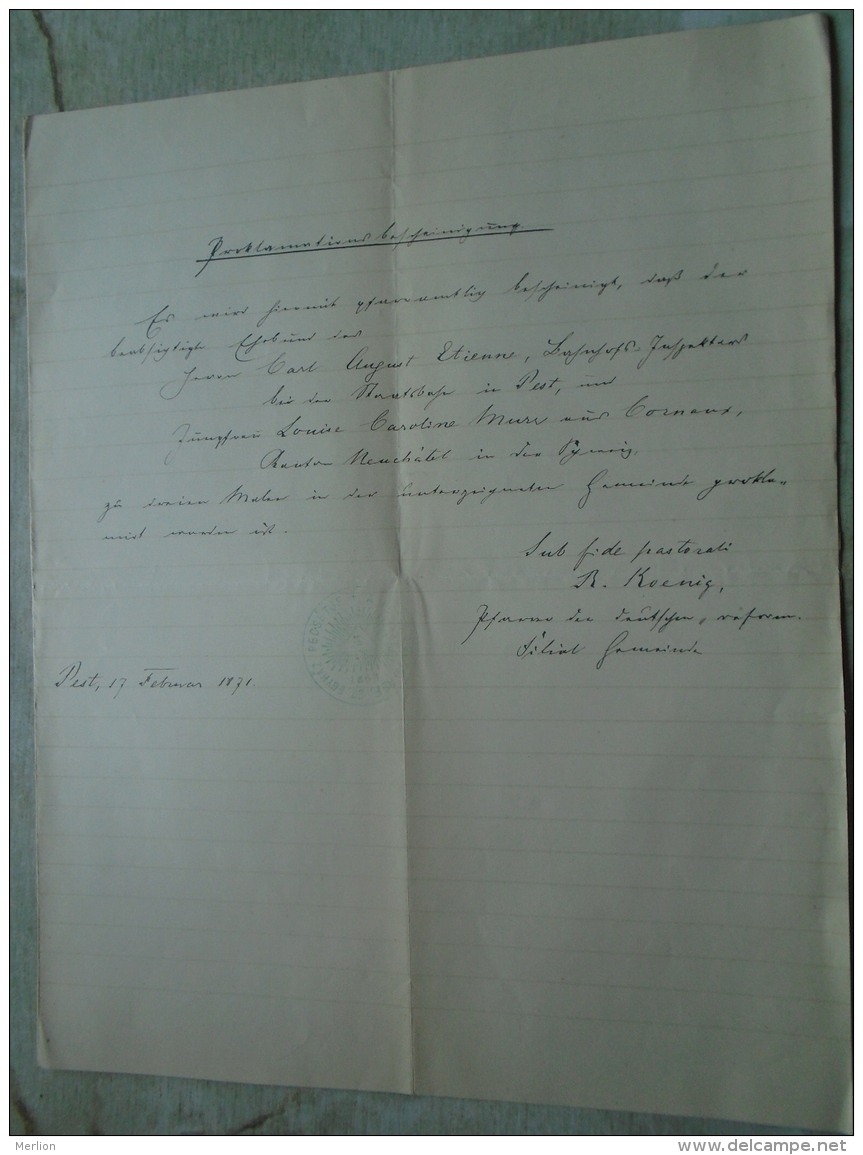 Proklamationsbescheinigung.
Es wird hiermit pfarramtlich bescheinigt, daß der
beabsichtigte Ehebund des
Herrn Carl August Etienne, Bahnhofs-Inspektors
bei der Staatsbahn in Pest, und
Jungfrau Louise Caroline aus Cornaux,
Kanton Neuchâtel in der Schweiz,
zu dreien Malen in der unterzeigneten Gemeinde prokla-
mirt worden ist.
Sub fide pastorali
R. Koenig,
Pfarrer der deutschen reform.
Filial Gemeinde
Pest, 17 Februar 1871.
Merlion
www.delcampe.net